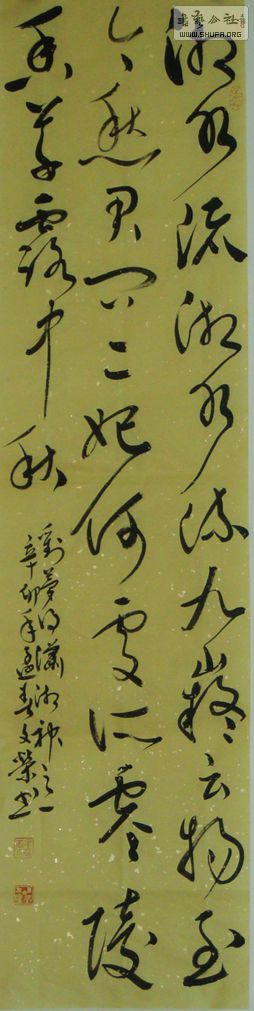 書藝公社
WWW.SHUFA.ORG
湘水流湘水流九嶷云物至
今愁君问二妃何處所零陵
香草露中秋
劉夢得瀟湘神之一
辛卯年春文榮书